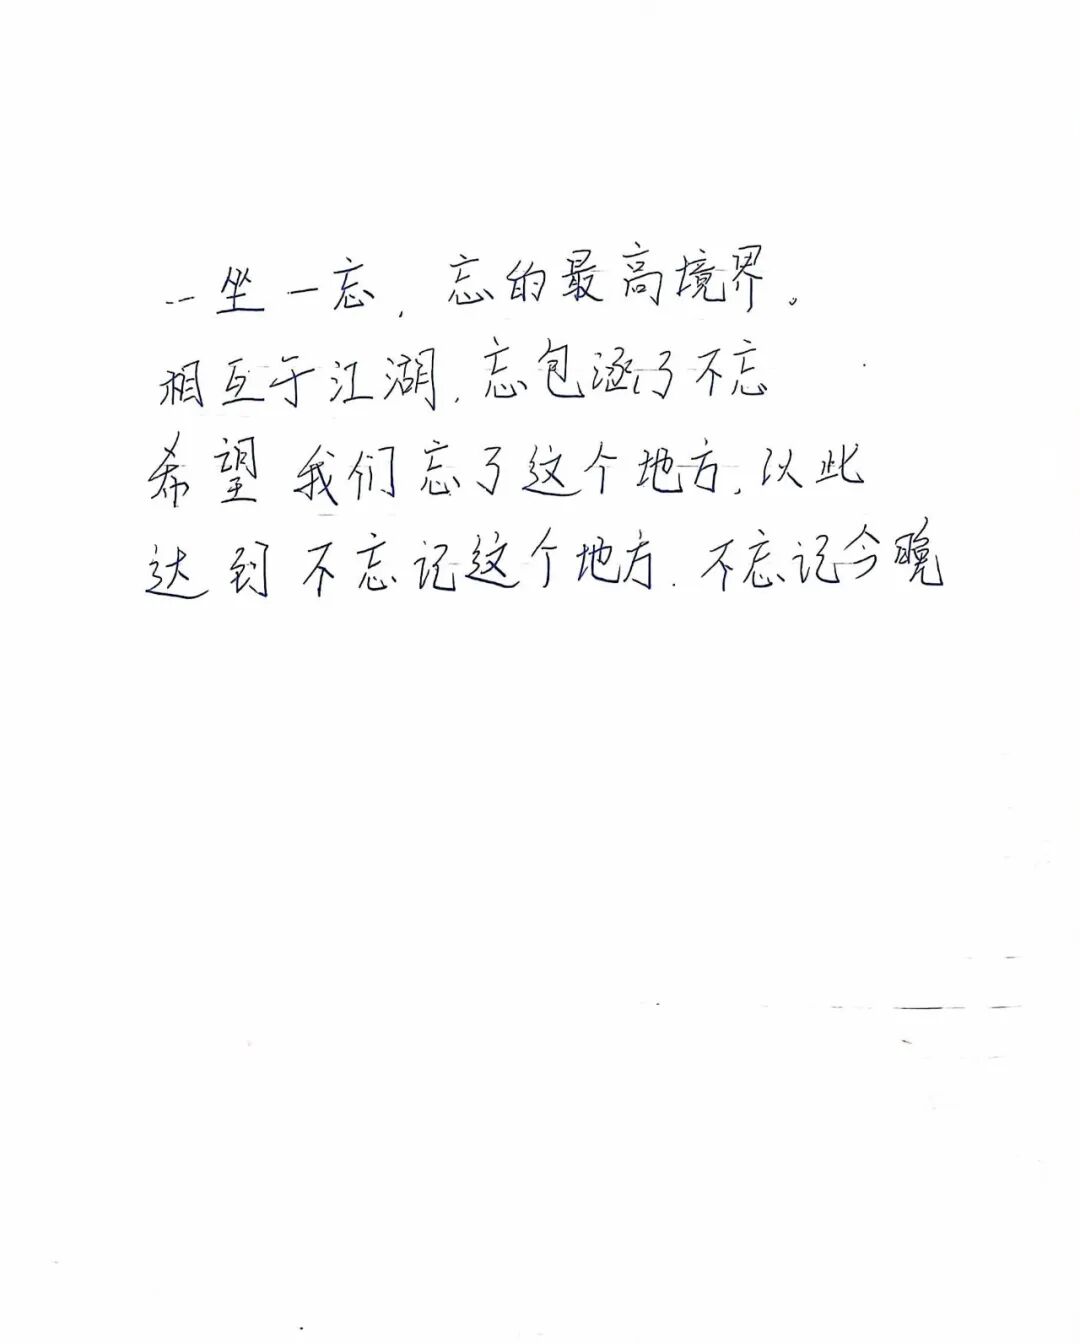 一坐一忘，忘的最高境界。
相互于江湖，忘包涵了不忘
希望我们忘了这个地方，以此
达到不忘记这个地方.不忘记今晚